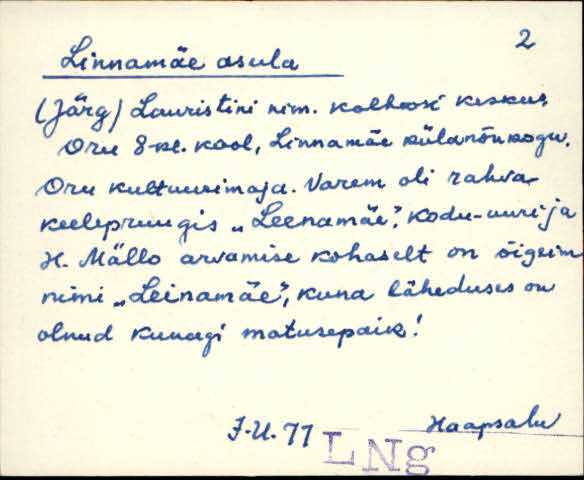 2
Linnamäe asula
(Järg) Lauristini nim. kolhoosi keskus,
Oru 8-kl. kool, Linnamäe külanõukogu,
Oru kultuurimaja. Varem oli rahva
keelepruugis „Leenamäe”, kodu-uurija
H. Mällo arvamise kohaselt on õigeim
nimi „Leinamäe”, kuna läheduses on
olnud kunagi matusepaik!
J.U. 77 Haapsalu
LNg